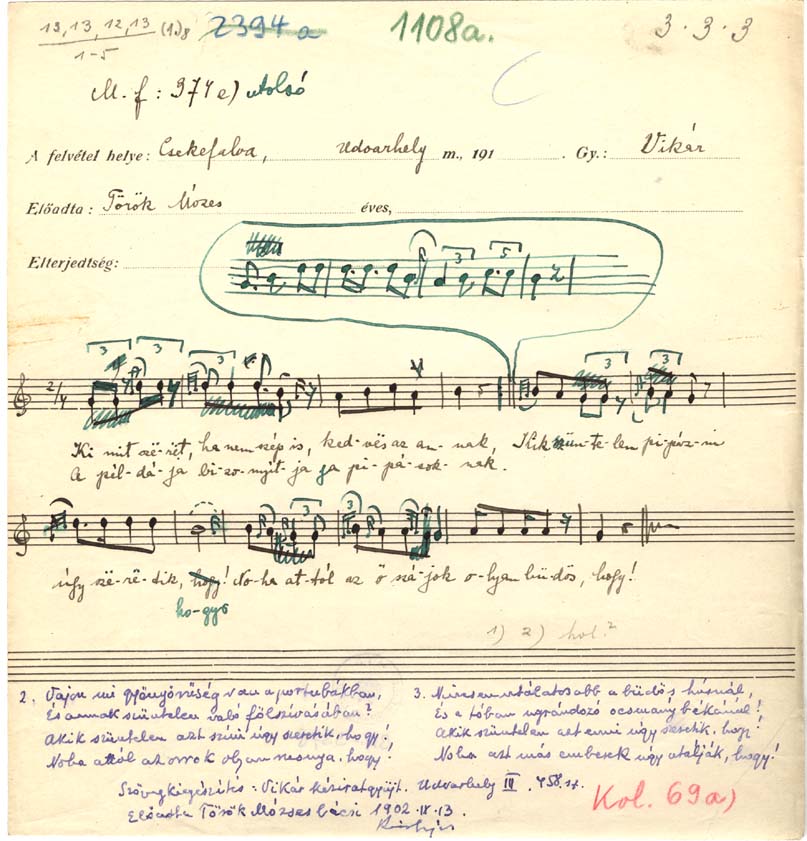 13, 13, 12, 13 (1.)8 2394 a 1108a. 3 · 3 · 3
1-5
M. f: 974 e) utolsó
A felvétel helye: Csekefalva, Udvarhely m., 191 . Gy.: Vikár
Előadta: Török Mózes éves,
Elterjedtség:
3 5
3 3 3 3 3
2/4
Ki mit szë-rët, ha nem szép is, ked-vës az an-nak, Kik szün-te-len pi-póz-ni
A pél-dá-ja bi-zo-nyit-ja ja pi-pá-sok-nak.
3 3
úgy szë-rë-tik, hogy! No-ha at-tól az ő szá-jok o-lyan bü-dös, hogy!
ho-gyo
1) 2) hol?
2. Vajon mi gyönyörűség van a portubákban,
És annak szüntelen való fölszívásában?
Akik szüntelen azt színi úgy szeretik, hogy!
Noha attól az orrok olyan rusnya, hogy!
3. Nincsen utálatosabb a büdös húsnál,
És a tóban ugrándozó ocsmány békánál!
Akik szüntelen azt enni úgy szeretik, hogy!
Noha azt más emberek úgy utálják, hogy!
Szövegkiegészítés: Vikár kéziratgyűjt. Udvarhely III. 458. sz.
Előadta Török Mózses bácsi 1902. IX. 13.
Kol. 69a)